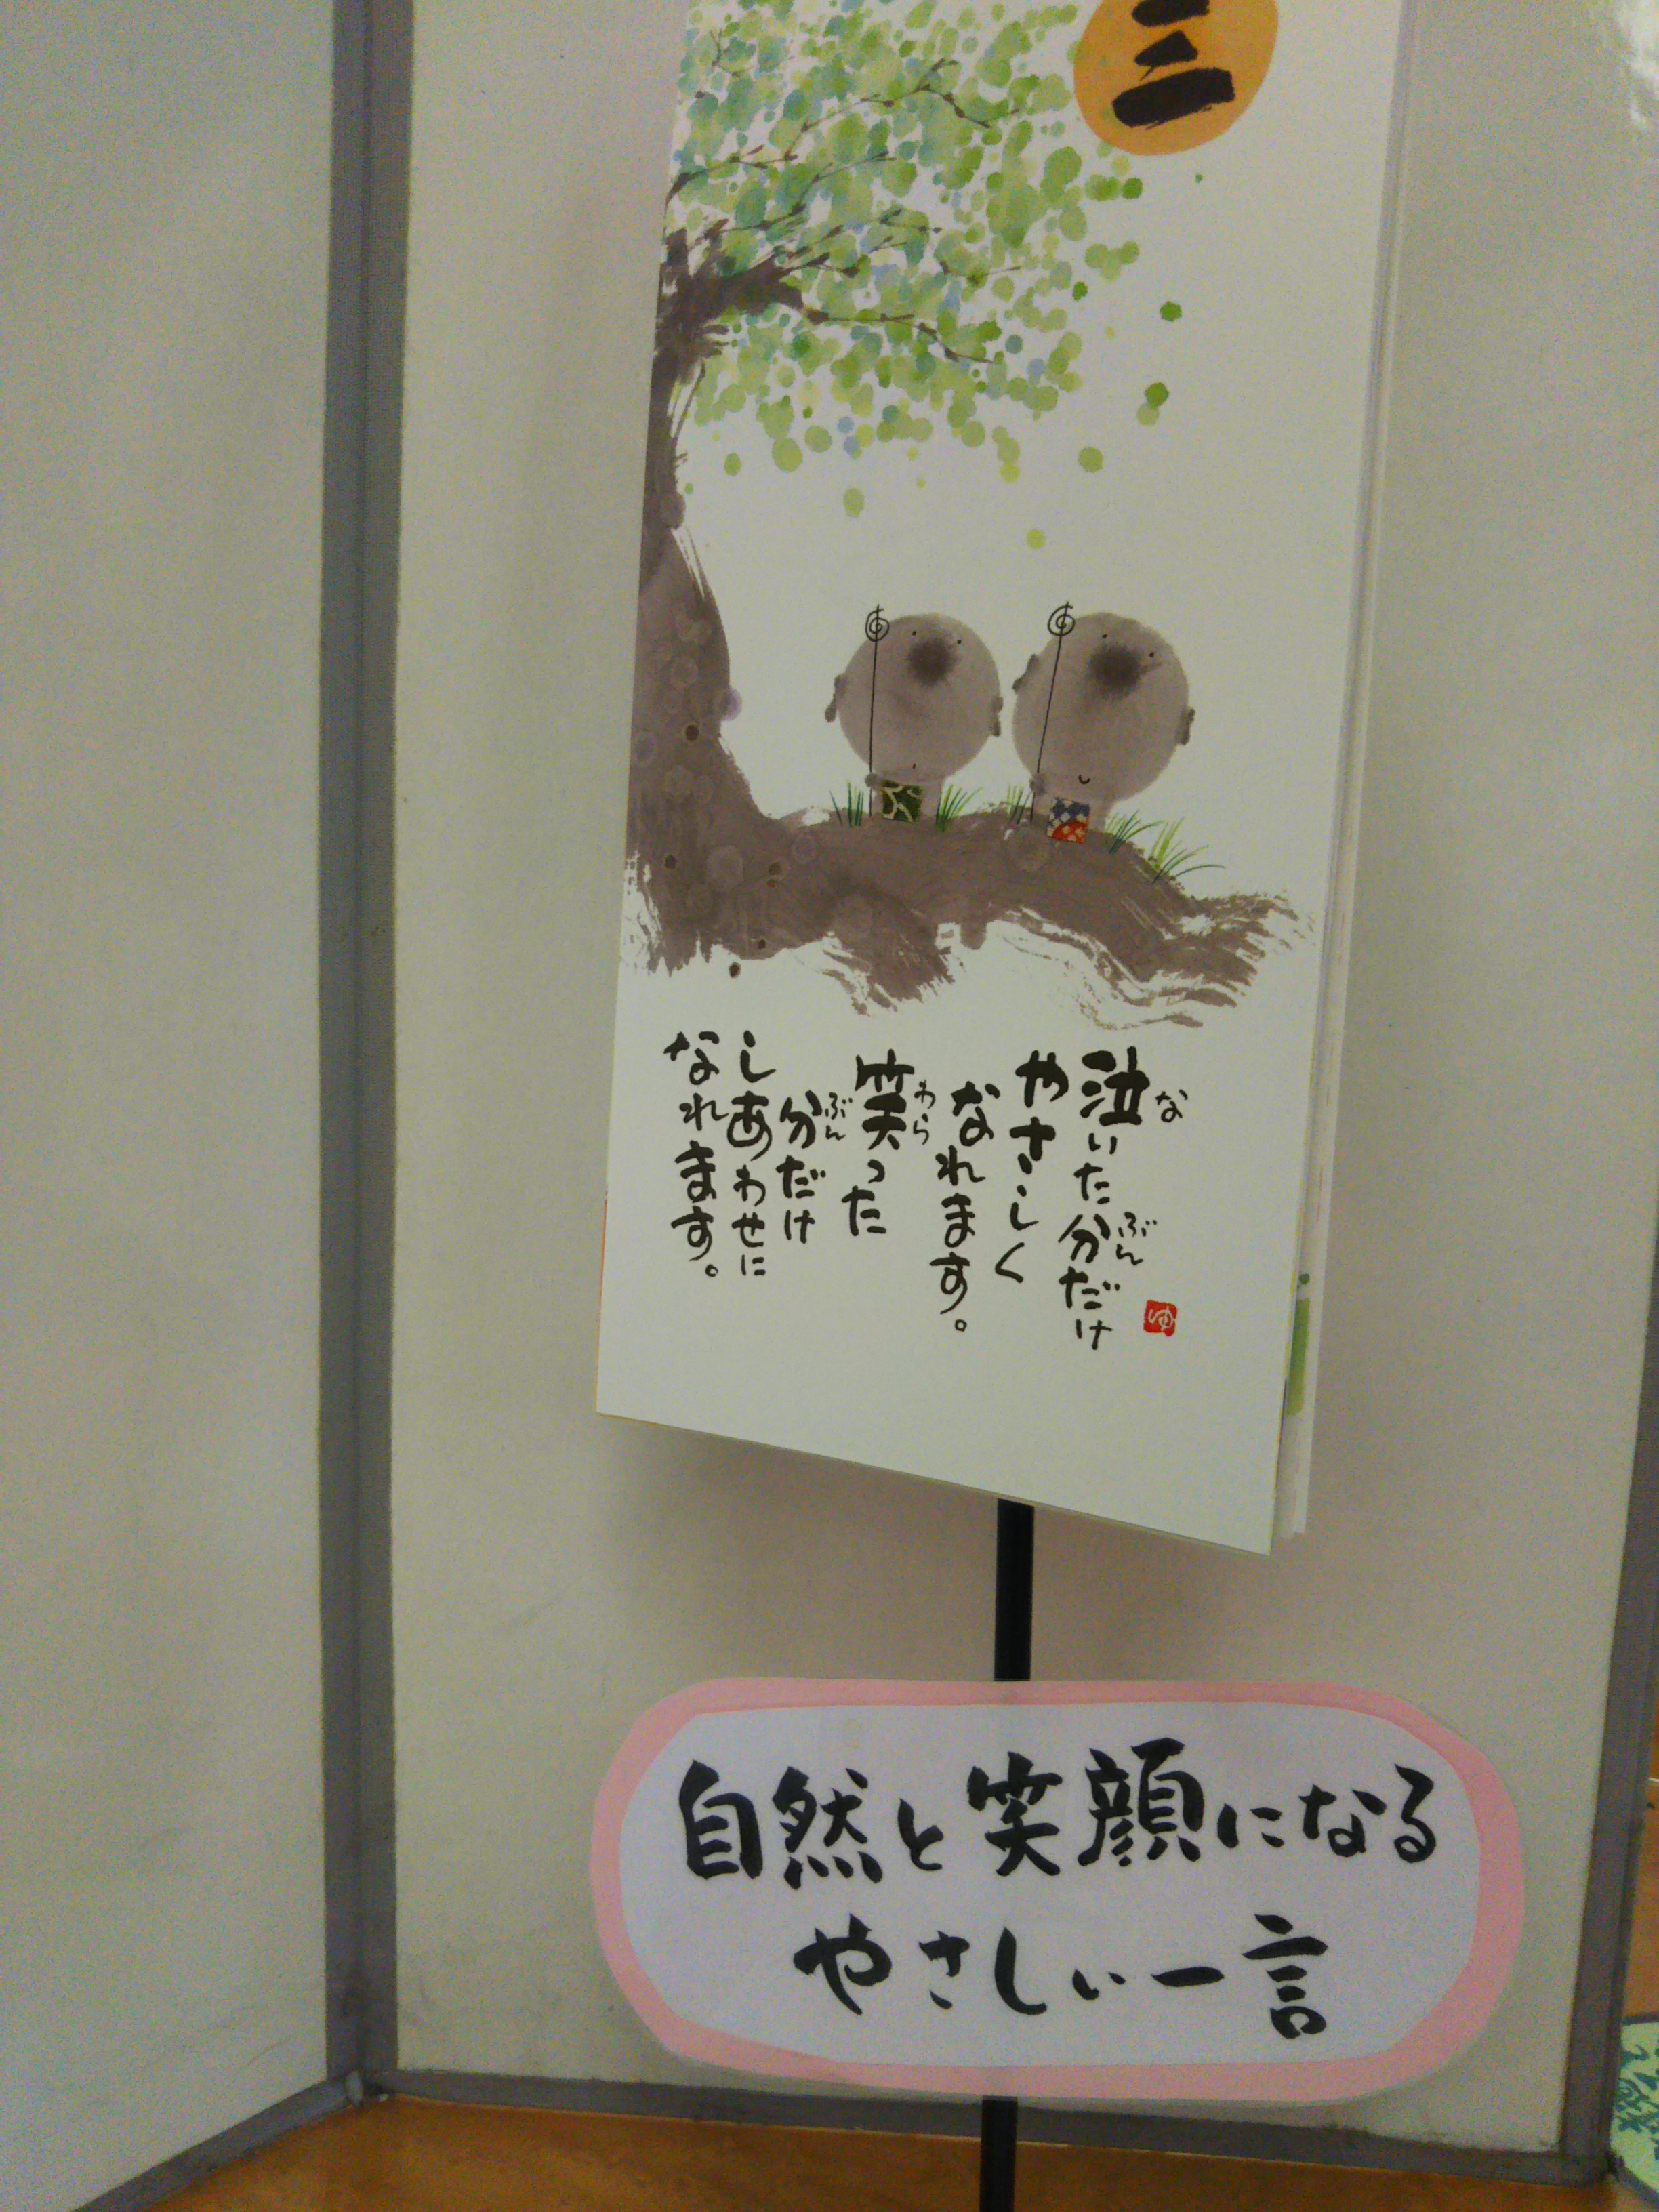 三
泣いた分だけ
やさしく
なれます。
笑った
分だけ
しあわせに
なれます。
な
ぶん
わら
ぶん
ゆ
自然と笑顔になる
やさしい一言